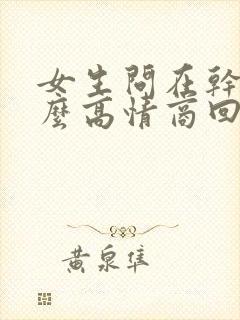 女生問在幹
麼高情商回
黃泉隼